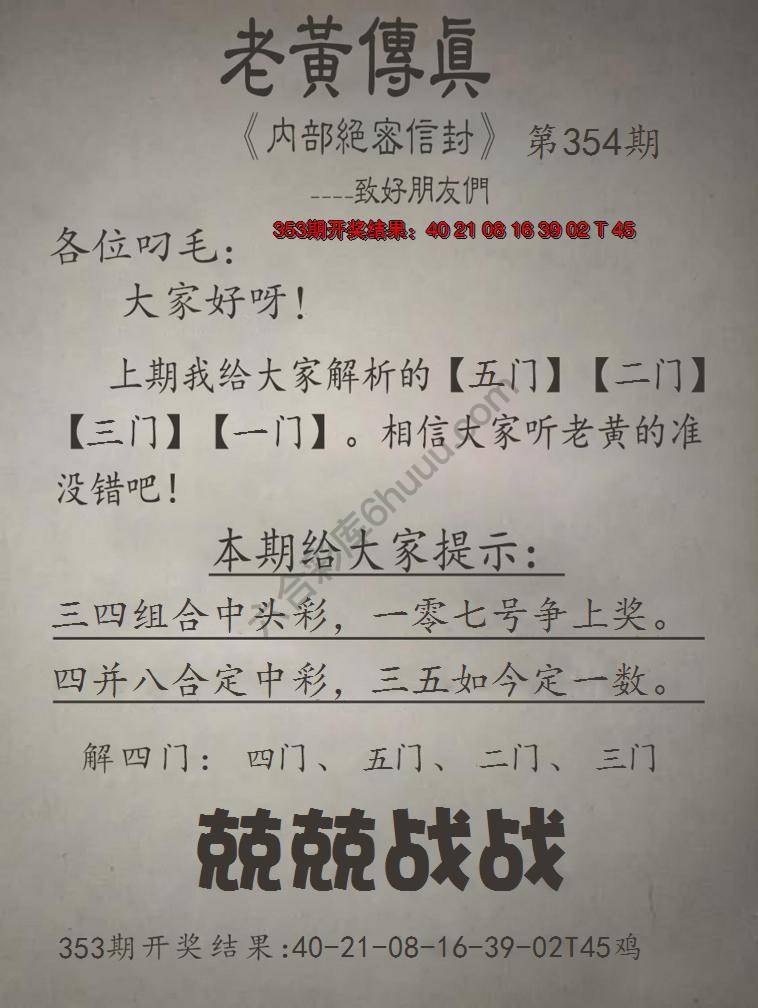 老黃傳真
《内部絕密信封》 第354期
----致好朋友們
353期开奖结果：40 21 08 16 39 02 T 45
各位叼毛：
大家好呀！
上期我给大家解析的【五门】【二门】
【三门】【一门】。相信大家听老黄的准
没错吧！
本期给大家提示：
三四组合中头彩，一零七号争上奖。
四并八合定中彩，三五如今定一数。
解四门： 四门、 五门、 二门、 三门
兢兢战战
353期开奖结果:40-21-08-16-39-02T45鸡
六合彩库6huuu.com